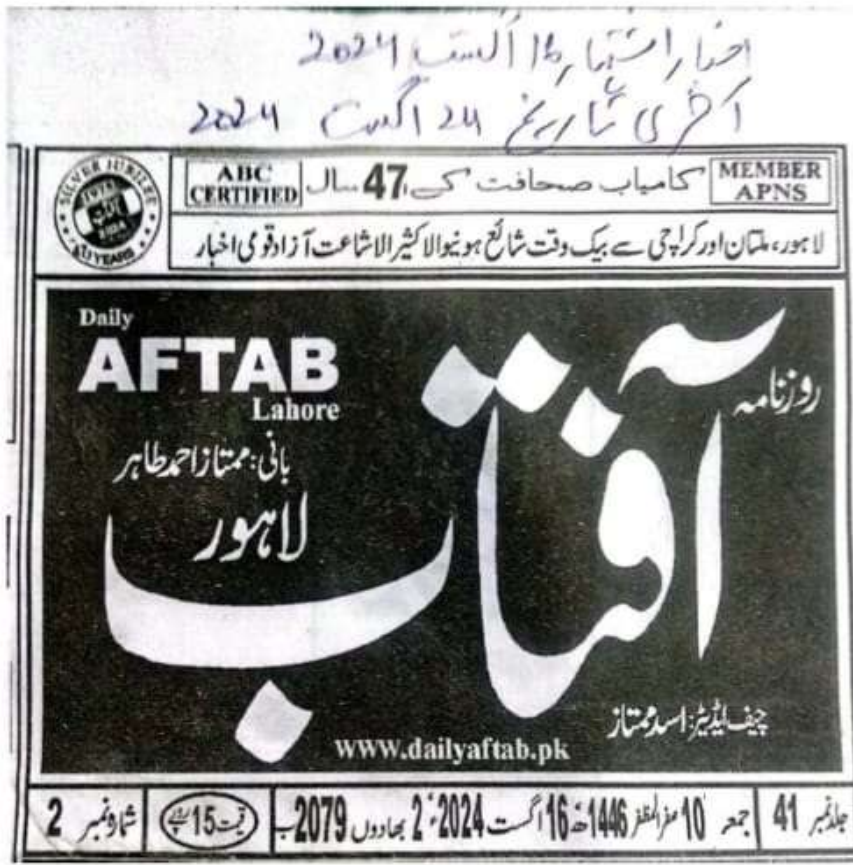 اخبار اشتہار 16 اگست 2024
آخری تاریخ 24 اگست 2024
SILVER JUBILEE
YEARS
ABC CERTIFIED
کامیاب صحافت کے 47 سال
MEMBER APNS
لاہور، ملتان اور کراچی سے بیک وقت شائع ہونیوالا کثیر الاشاعت آزاد قومی اخبار
Daily
AFTAB
Lahore
روزنامہ
آفتاب
بانی: ممتاز احمد طاہر
لاہور
چیف ایڈیٹر: اسد ممتاز
www.dailyaftab.pk
جلد نمبر 41 جمعہ 10 صفر المظفر 1446ھ 16 اگست 2024ء 2 بھادوں 2079ب قیمت 15 روپے شمارہ نمبر 2